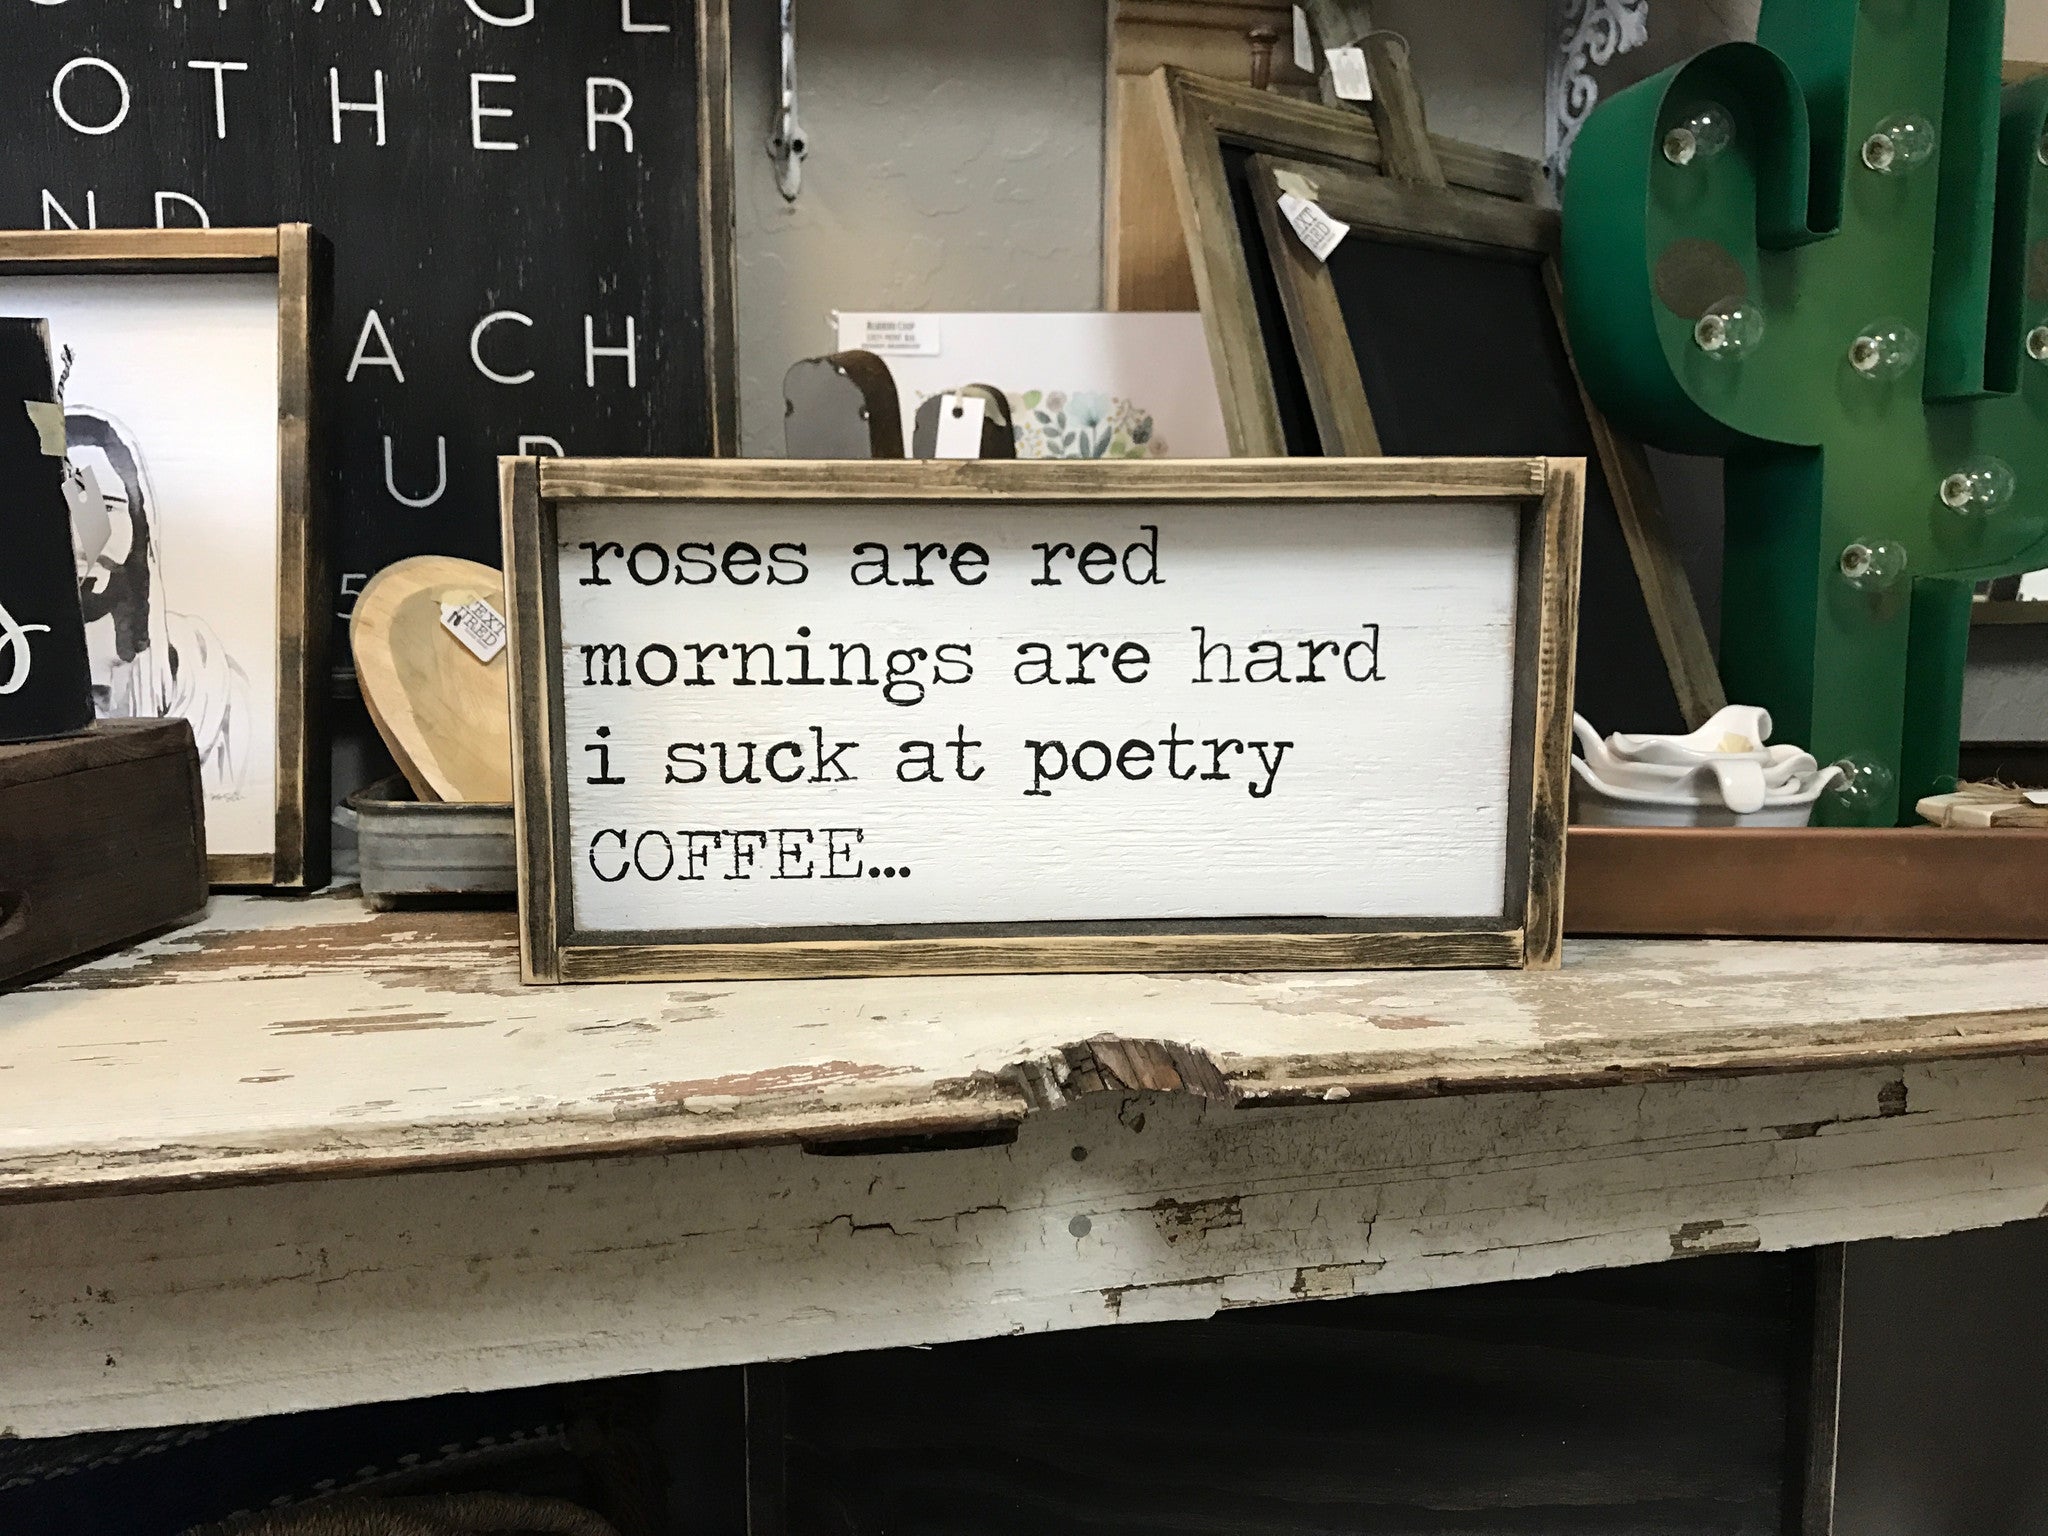 OTHER
ACH
roses are red
mornings are hard
i suck at poetry
COFFEE...